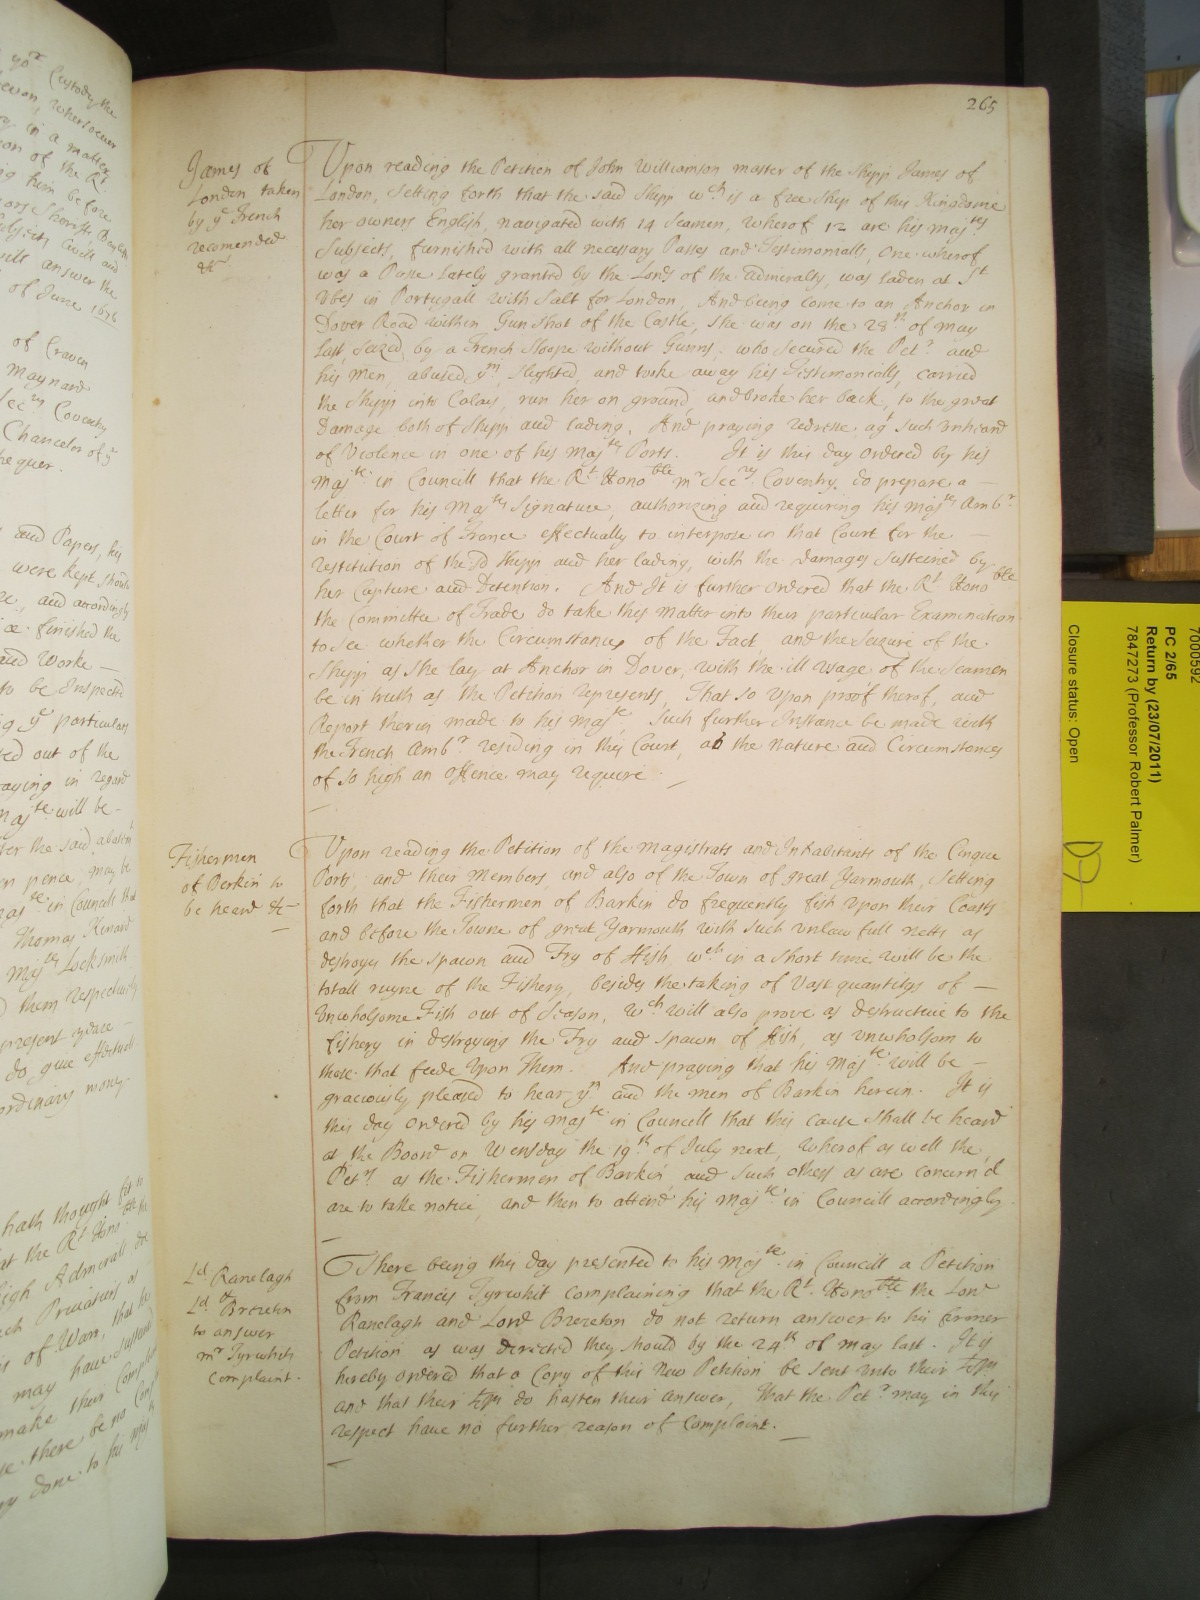 265
James of
London taken
by ye French
recomended
&c
Upon reading the Petition of John Williamson master of the Shipp James of
London, Setting forth that the said Shipp wch is a free Ship of this Kingdome
her owners English, navigated with 14 Seamen, wherof 12 are his majtys
Subjects, furnished with all necessary Passes and Testimonialls, one wherof
was a Passe lately granted by the Lords of the Admiralty, was laden at St
Vbes in Portugall with Salt for London, And being come to an Anchor in
Dover Road within Gun Shot of the Castle, she was on the 28th of May
last, Seized by a French Sloope without Gunns, who Secured the Petr and
his men, abused ym, Slighted, and tooke away his Testimonialls, carried
the Shipp into Calais, run her on ground, and broke her back, to the great
Damage both of Shipp and lading. And praying redresse agt Such unheard
of Violence in one of his Majtes Ports. It is this day ordered by his
Majte in Councill that the Rt Honoble mr Secry Coventry do prepare a
letter for his Majtes Signature, authorizing and requiring his Majtes Ambr
in the Court of France effectually to interpose in that Court for the
restitution of the sd Shipp and her lading, with the damages Sustained by
her Capture and Detention. And It is further ordered that the Rt Honoble
the Committee of Trade do take this Matter into their particular Examination
to See whether the Circumstances of the Fact, and the Seizure of the
Shipp as She lay at Anchor in Dover, with the ill usage of the Seamen
be in truth as the Petition represents, That So upon proof therof, and
Report therin made to his Majte, Such further Instance be made with
the French Ambr residing in this Court, as the Nature and Circumstances
of So high an offence may require
Fishermen
of Berkin to
be heard &c
Upon reading the Petition of the Magistrats and Inhabitants of the Cinque
Ports, and their Members, and also of the Town of great Yarmouth, Setting
forth that the Fishermen of Barkin do frequently fish upon their Coasts
and before the Towne of great Yarmouth with Such unlawfull netts as
destroys the Spawn and Fry of Fish, wch in a Short time will be the
totall ruyne of the Fishery, besides the taking of Vast quantitys of
Unwholsome Fish out of Season, wch will also prove as destructive to the
fishery in destroying the Fry and Spawn of Fish, as unwholsom to
those that feede Upon Them. And praying that his Majte will be
graciously pleased to hear ym and the men of Barkin herein. It is
this day ordered by his Majte in Councill that this cause Shall be heard
at the Board on Wensday the 19th of July next, Wherof as well the
Petrs as the Fishermen of Barkin, and Such others as are concern'd
are to take notice, and then to attend his Majte in Councill accordingly
Ld Ranelagh
Ld Brereton
to answer
mr Tyrwhits
Complaint.
There being this day presented to his Majte in Councill a Petition
from Francis Tyrwhit complaining that the Rt Honoble the Lord
Ranelagh and Lord Brereton do not return answer to his former
Petition as was directed they should by the 24th of May last. It is
hereby ordered that a Copy of this New Petition be sent unto their Lpps
and that their Lpps do hasten their answer, That the Petr may in this
respect have no further reason of Complaint.
7000592
PC 2/65
Return by (23/07/2011)
7847273 (Professor Robert Palmer)
Closure status: Open